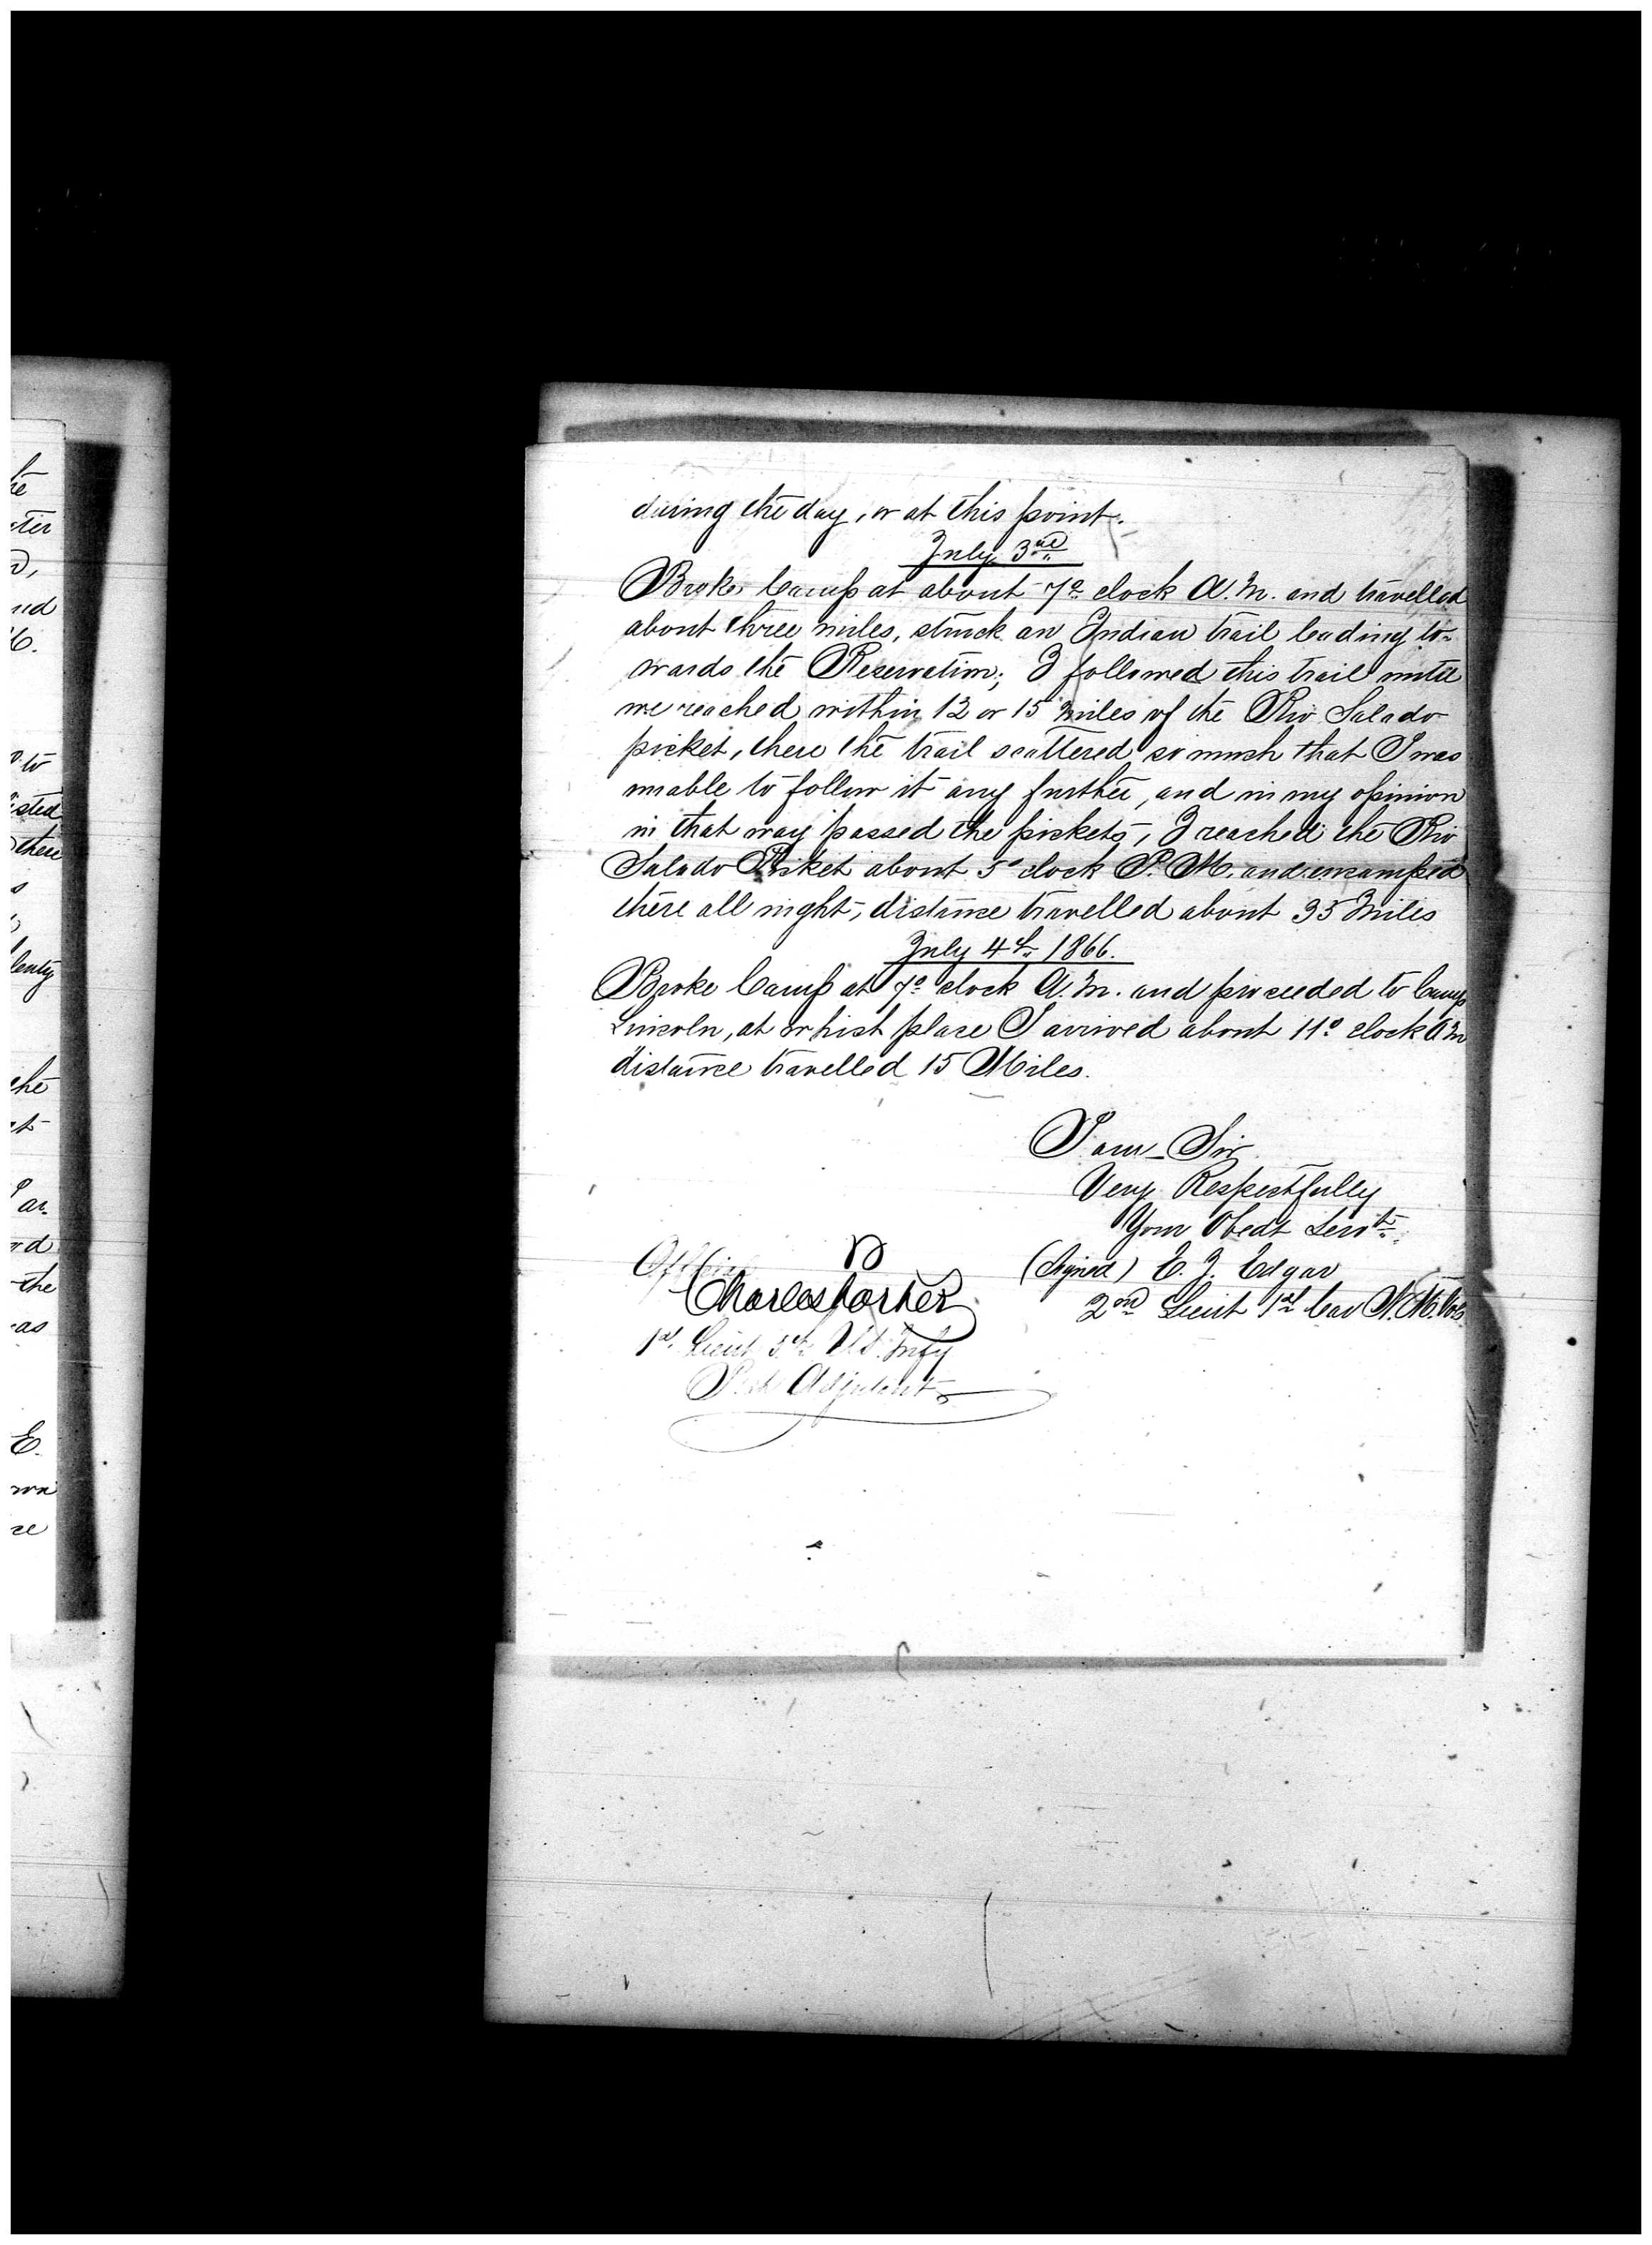 during the day, or at this point.
July 3rd
Broke Camp at about 7 o clock A.M. and travelled
about three miles, struck an Indian trail leading to-
wards the Reservation; I followed this trail until
we reached within 12 or 15 Miles of the Rio Salado
picket, there the trail scattered so much that I was
unable to follow it any further, and in my opinion
in that way passed the pickets, I reached the Rio
Salado Picket about 5 o clock P.M. and encamped
there all night, distance travelled about 35 Miles
July 4th 1866.
Broke Camp at 7 o clock A.M. and proceeded to Camp
Lincoln, at which place I arrived about 11 o clock A M
distance travelled 15 Miles.
I am Sir
Very Respectfully
Your Obedt Servt
(Signed) E. J. Edgar
2nd Lieut 1st Cav N.M. Vols
Official
Charles Porter
1st Lieut 5th U.S. Infy
Post Adjutant